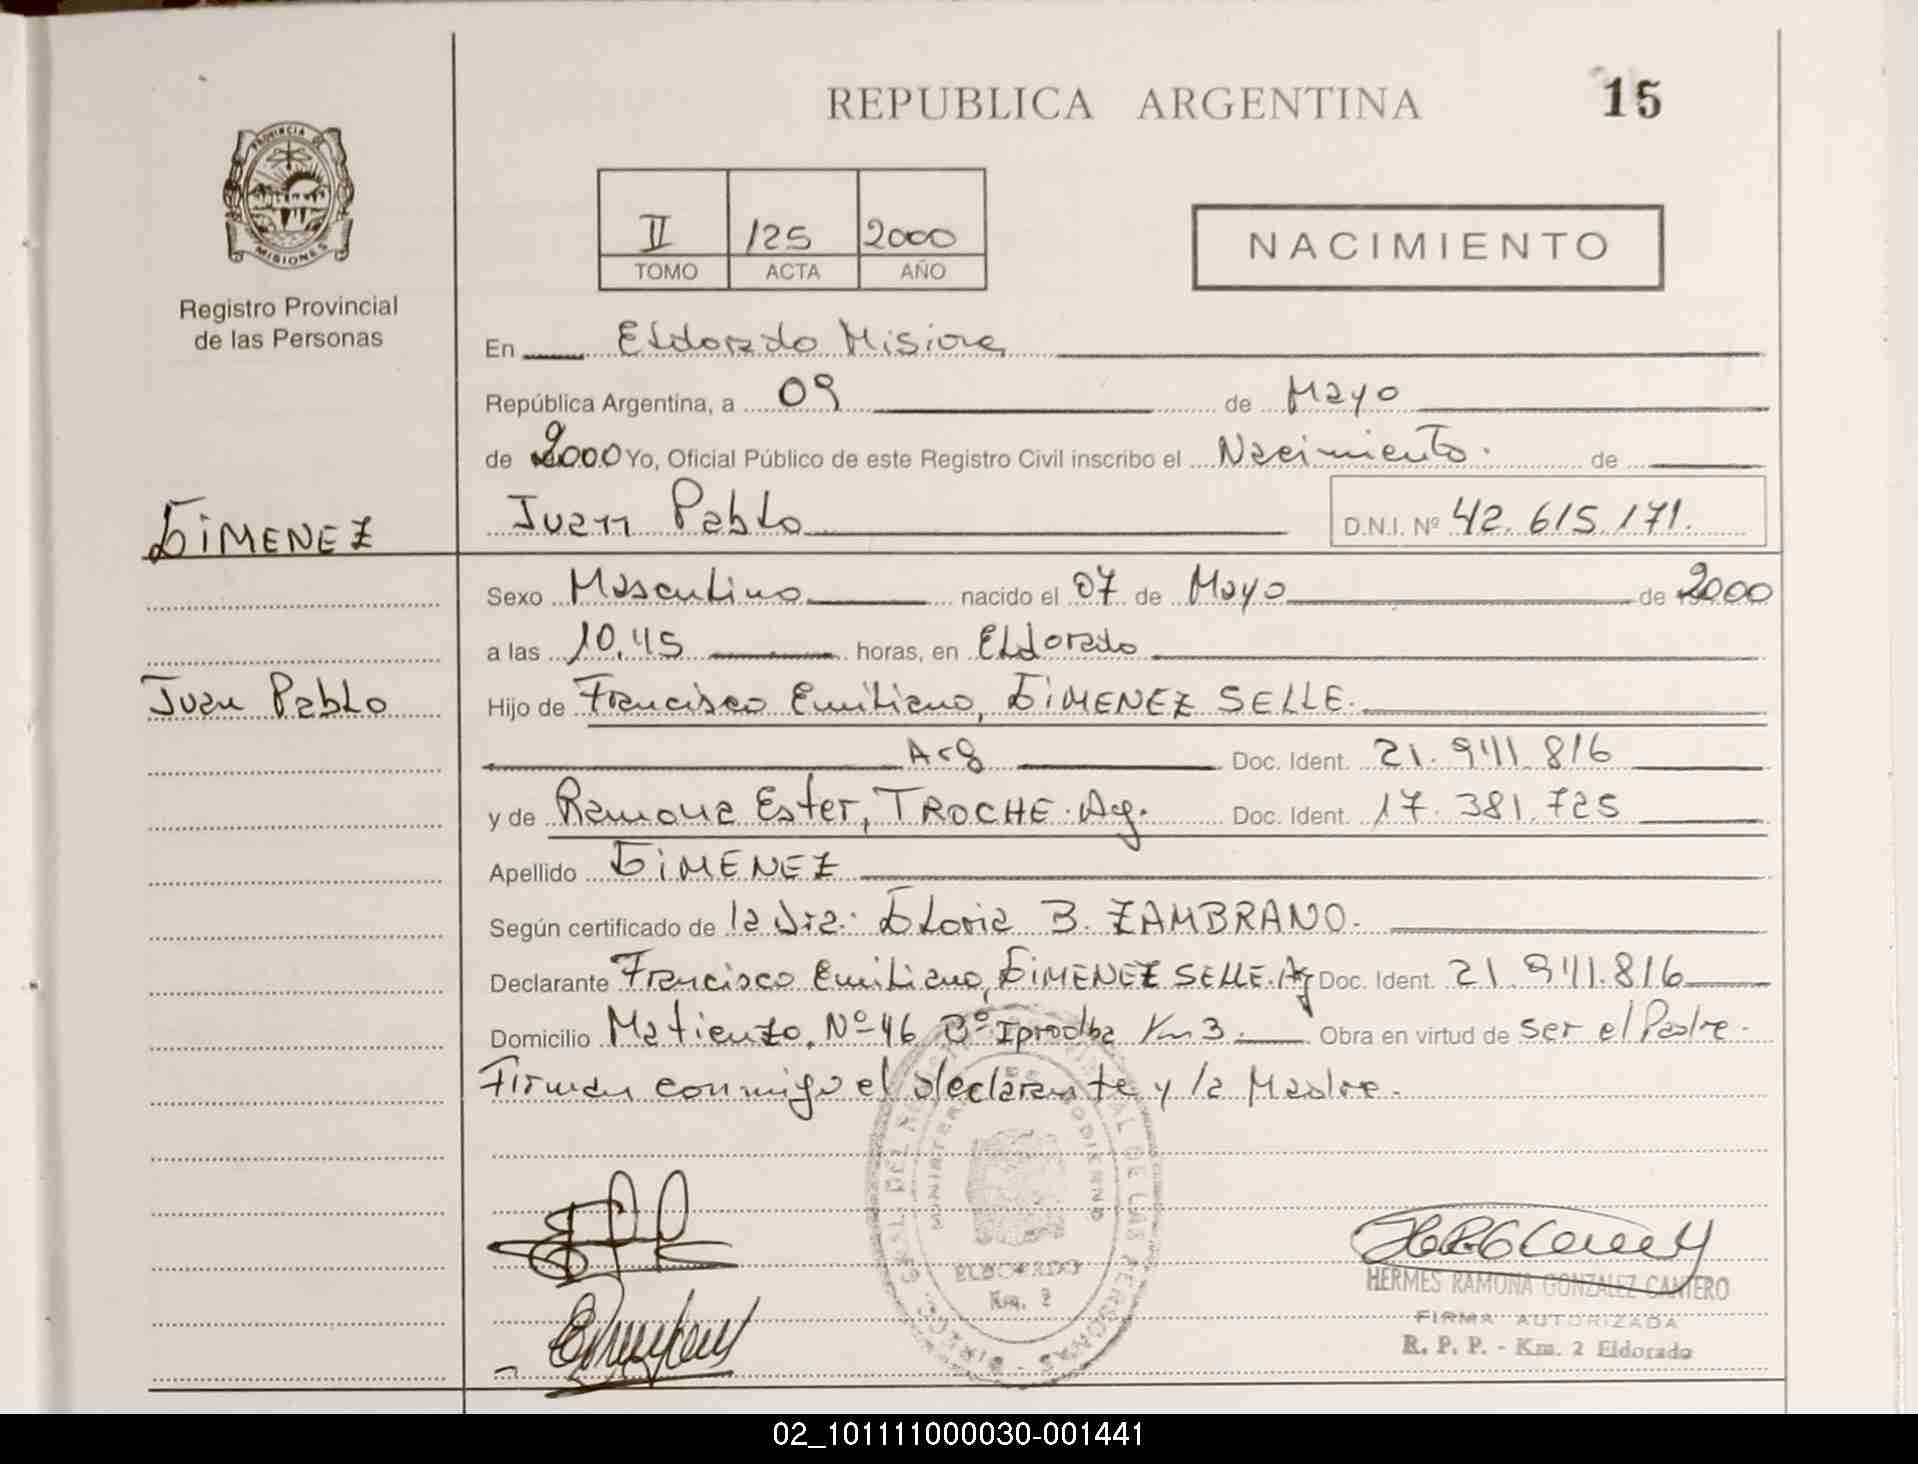 REPUBLICA ARGENTINA
15
PROVINCIA DE
MISIONES
Registro Provincial
de las Personas
II 125 2000
TOMO ACTA AÑO
NACIMIENTO
En Eldorado Misiones
República Argentina, a 09 de Mayo
de 2000 Yo, Oficial Público de este Registro Civil inscribo el Nacimiento. de
Juan Pablo D.N.I. Nº 42.615.171.
GiMENEZ
Sexo Masculino nacido el 07 de Mayo de 2000
a las 10.45 horas, en Eldorado
Juan Pablo
Hijo de Francisco Emiliano, GiMENEZ SELLE.
Arg Doc. Ident. 21.941.816
y de Ramona Ester, TROCHE. Arg. Doc. Ident. 17.381.725
Apellido GiMENEZ
Según certificado de la Dra. Gloria B. ZAMBRANO.
Declarante Francisco Emiliano, GiMENEZ SELLE. Arg Doc. Ident. 21.941.816
Domicilio Matienzo. Nº 46 Bº Iprodha Km 3. Obra en virtud de ser el Padre.
Firman conmigo el declarante y la Madre.
ELDORADO
Km. 2
HERMES RAMONA GONZALEZ CANTERO
FIRMA AUTORIZADA
R. P. P. - Km. 2 Eldorado
02_101111000030-001441